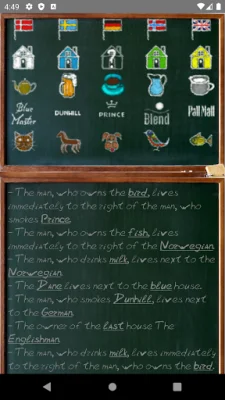 4:49
Blue
Master
DUNHILL
PRINCE
Blend
Pall Mall
- The man, who owns the bird, lives
immediately to the right of the man, who
smokes Prince.
- The man, who owns the fish, lives
immediately to the right of the Norwegian.
- The man, who drinks milk, lives next to the
Norwegian.
- The Dane lives next to the blue house.
- The man, who smokes Dunhill, lives next
to the German.
- The owner of the last house The
Englishman.
- The man, who drinks milk, lives immediately
to the right of the man, who owns the bird.